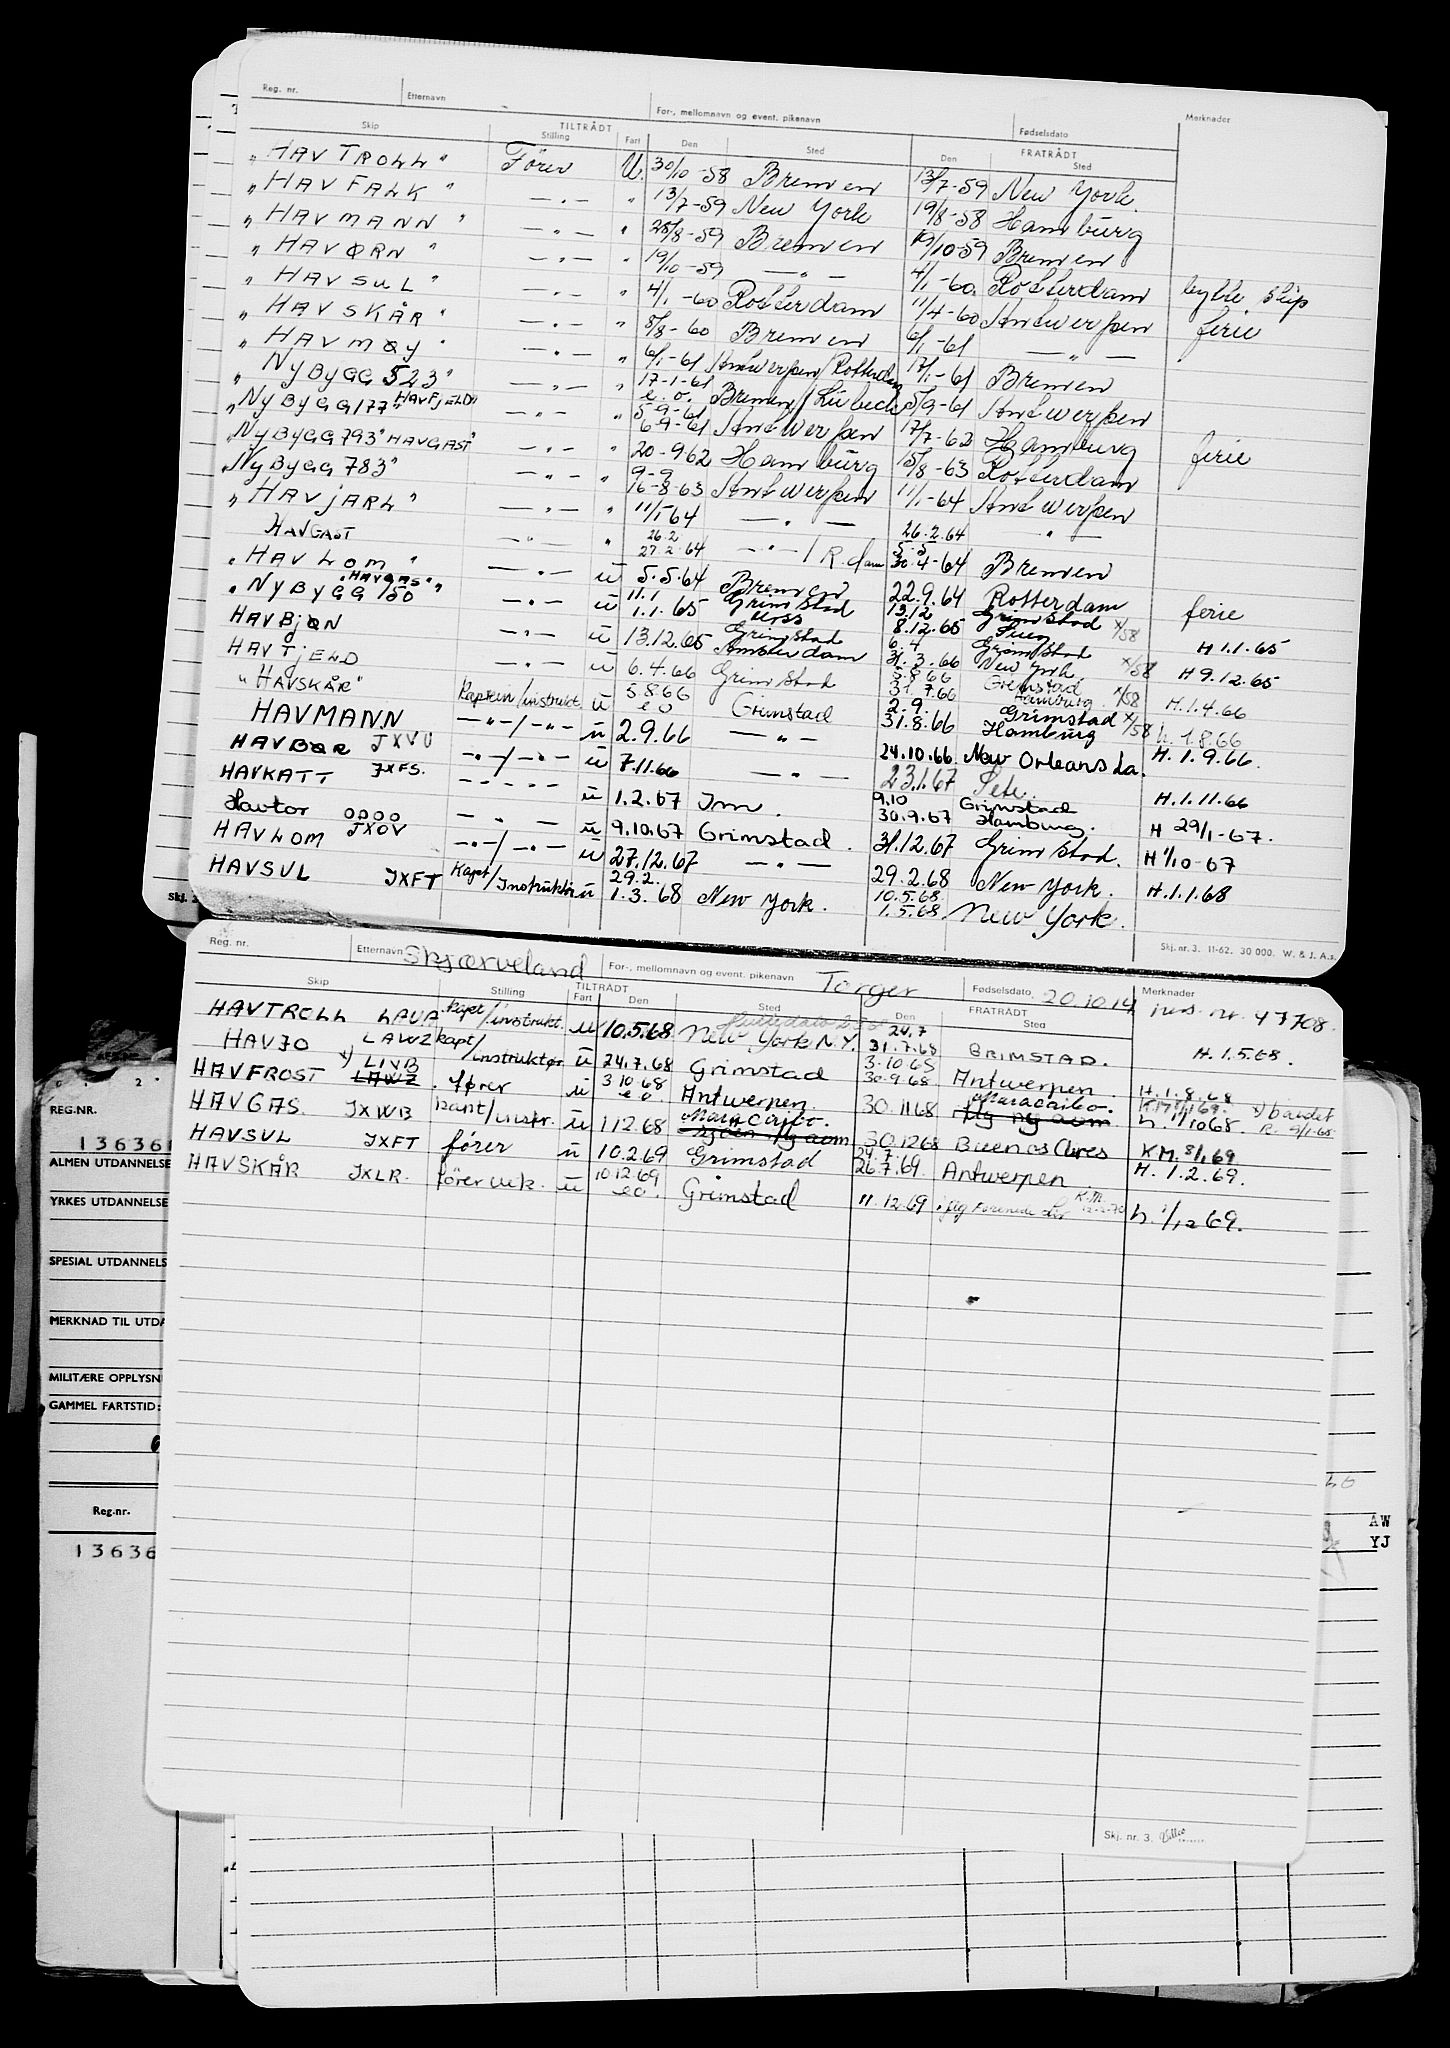 Reg. nr. Etternavn For-, mellomnavn og event. pikenavn Fødselsdato Merknader
Skip TILTRÅDT Stilling Fart Den Sted FRATRÅDT Den Sted
"HAVTROLL" Fører U. 30/10-58 Bremen 13/7-59 New York.
"HAVFALK" —"— " 13/7-59 New York 19/8-58 Hamburg
"HAVMANN" —"— " 25/8-59 Bremen 19/10-59 Bremen
"HAVØRN" —"— " 19/10-59 —"— 4/1-60 Rotterdam bytte skip
"HAVSUL" —"— " 4/1-60 Rotterdam 11/4-60 Antwerpen ferie
"HAVSKÅR" —"— " 5/8-60 Bremen 6/1-61 —"—
"HAVMØY" —"— " 6/1-61 Antwerpen/Rotterdam 17/1-61 Bremen
"NYBYGG 523" —"— " 17-1-61 e.o. Bremen/Lübeck 5/9-61 Antwerpen
"NYBYGG 177" "HAVFJELD" —"— " 5-9-61 6-9-61 Antwerpen 17/7-62 Hamburg ferie
"NYBYGG 793" HAVGAST" —"— " 20-962 Hamburg 15/8-63 Rotterdam
"NYBYGG 783" —"— " 9-9 16-8-63 Antwerpen 11/1-64 Antwerpen
"HAVJARL" —"— " 11/1-64 —"— 26.2.64 "
HAVGAST —"— " 26.2 27.2.64 —"—/R.dam 5.5 30.4-64 Bremen
"HAVLOM" —"— ü 5.5.64 Bremen 22.9.64 Rotterdam ferie
"NYBYGG 150" "HAVGAS" —"— ü 11.1 1.1.65 Grimstad 13.12 8.12.65 Grimstad x/58 H 1.1.65
HAVBJØN —"— ü 13.12.65 Grimstad Amsterdam 6.4 31.3.66 Grimstad New York x/58 H 9.12.65
HAVTJELD —"— ü 6.4.66 Grimstad 5.8.66 31.7.66 Grimstad Hamburg x/58 H.1.4.66
"HAVSKÅR" Kaptein/instrukt. ü 5.8.66 eo Grimstad 2.9. 31.8.66 Grimstad Hamburg x/58 h. 1.8.66
HAVMANN JXVU —"—/—"— ü 2.9.66 —"— 24.10.66 New Orleans La. H. 1.9.66.
HAVBØR JXFS. —"—/—"— ü 7.11.66 —"— 23.1.67 Sete. H.1.11.66
HAVKATT —"— ü 1.2.67 Im. 9.10 30.9.67 Grimstad Hamburg. H 29/1-67.
Havtor OOOO —"— ü 9.10.67 Grimstad. 31.12.67 Grimstad. H 1/10-67
HAVLOM JXOV —"—/—"— ü 27.12.67 —"— 29.2.68 New York. H.1.1.68
HAVSUL JXFT Kapt/Instruktør ü 29.2. 1.3.68 New York. 10.5.68 1.5.68 New York.
Skj. nr. 3. 11-62. 30 000. W. & J. A.s.
Reg. nr. Etternavn Skjærveland For-, mellomnavn og event. pikenavn Torger Fødselsdato 20.10.14 Merknader nr. 47708.
Skip Stilling TILTRÅDT Fart Den Sted FRATRÅDT Den Sted
HAVTROLL LAUA kapt/instrukt. ü 10.5.68 New York N.Y. 24.7 31.7.68 GRIMSTAD. H.1.5.68.
HAVJO LAWZ kapt/instruktør ü 24.7.68 Grimstad 3.10.68 30.9.68 Antwerpen H.1.8.68
HAVFROST x) LIVB LAWZ fører ü 3.10.68 eo Antwerpen. 30.11.68 Maracaibo. KM 8/1.69. h. 1/10 68
HAVGAS. JXWB kapt/instr. ü 1.12.68 Maracaibo. 30.12.68 Buenos Aires KM. 8/1.69
HAVSUL JXFT fører ü 10.2.69 Grimstad 24.7. 26.7.69. Antwerpen. H. 1.2.69.
HAVSKÅR JXLR. fører vik. ü 10.12.69 eo. Grimstad 11.12.69 K.M. 12.2.70 h. 1/12 69.
Skj. nr. 3.
REG.NR.
13636
ALMEN UTDANNELSE
YRKES UTDANNELSE
SPESIAL UTDANNELS
MERKNAD TIL UTDA
MILITÆRE OPPLYSN
GAMMEL FARTSTID:
Reg.nr.
13636
AW
YJ